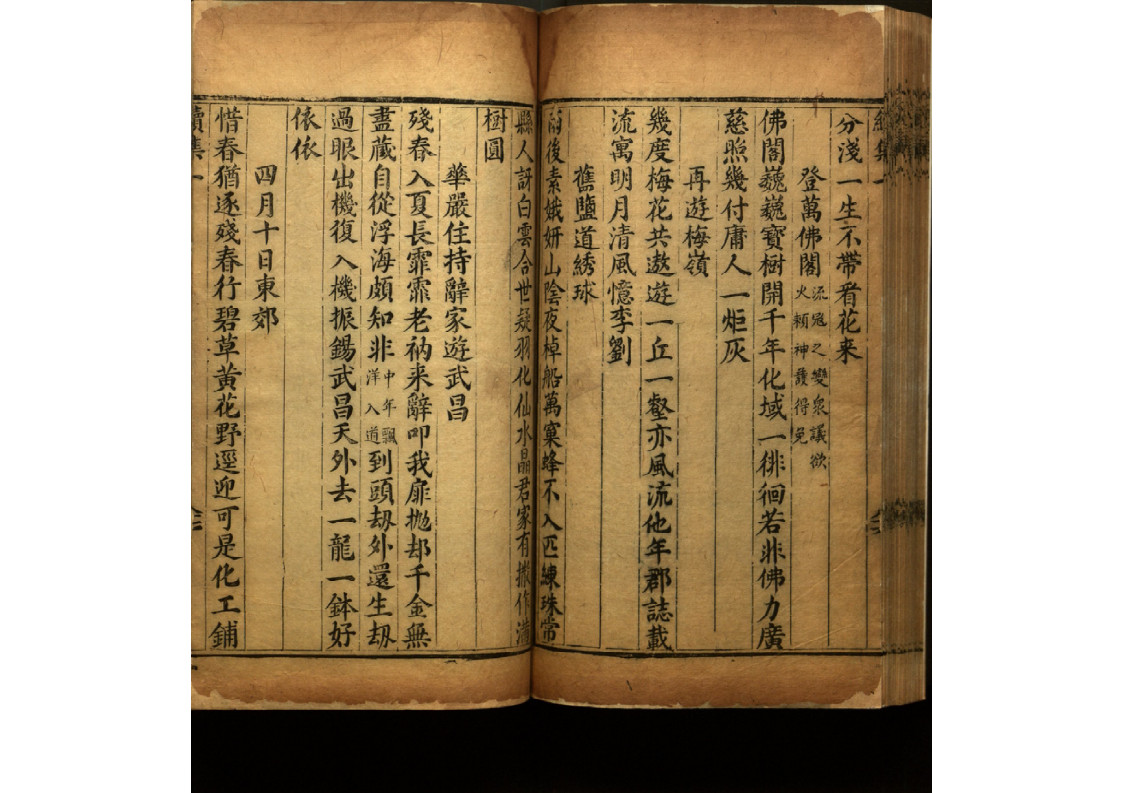 續集一
分淺一生不帶看花来
登萬佛閣流冦之變衆議欲火賴神護得免
佛閣巍巍寳樹開千年化域一徘徊若非佛力廣
慈照幾付庸人一炬灰
再遊梅嶺
幾度梅花共遨遊一丘一壑亦風流他年郡誌載
流寓明月清風憶李劉
舊鹽道綉球
雨後素娥妍山陰夜棹船萬窠蜂不入匹練珠常
縣人訝白雲合世疑羽化仙水晶君家有撒作滿
樹圓
華嚴住持辭家遊武昌
殘春入夏長霏霏老衲来辭叩我扉抛却千金無
盡藏自從浮海頗知非中年飄洋入道到頭劫外還生劫
過眼出機復入機振錫武昌天外去一龍一鉢好
依依
四月十日東郊
惜春猶逐殘春行碧草黄花野逕迎可是化工鋪
續集一